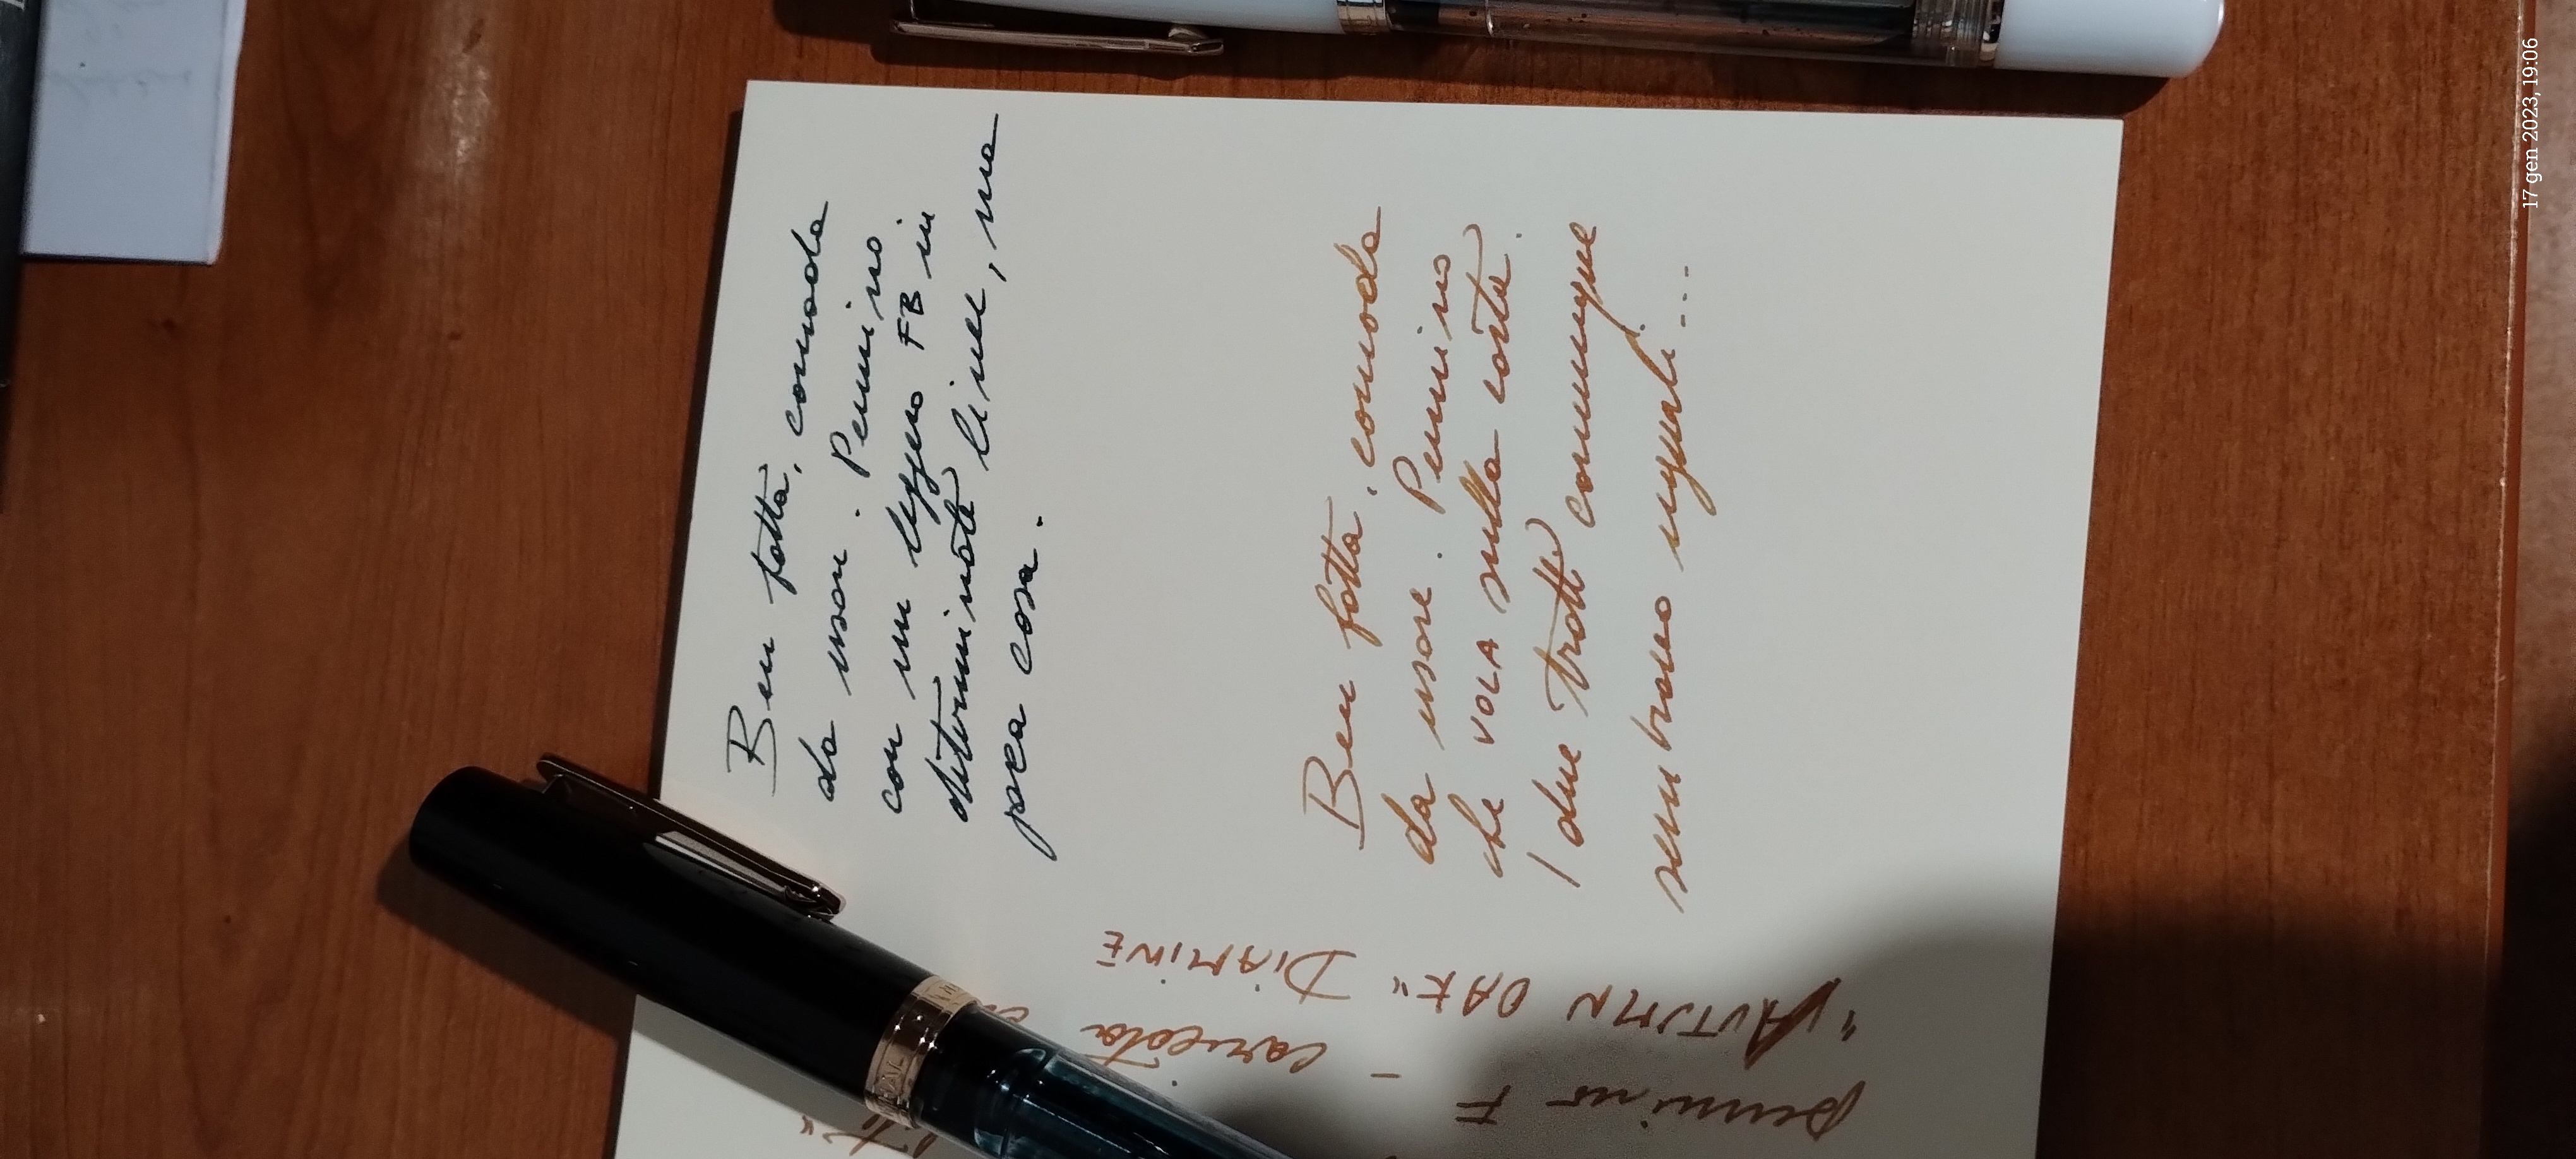 Ben fatta, comoda
da usare. Pennino
con un leggero FB in
determinate linee, ma
poca cosa.
Ben fatta, comoda
da usare. Pennino
che VOLA sulla carta.
I due tratti comunque
sembrano uguali...
Pennino F
- caricata
"AUTUMN OAK" DIAMINE
17 gen 2023, 19:06